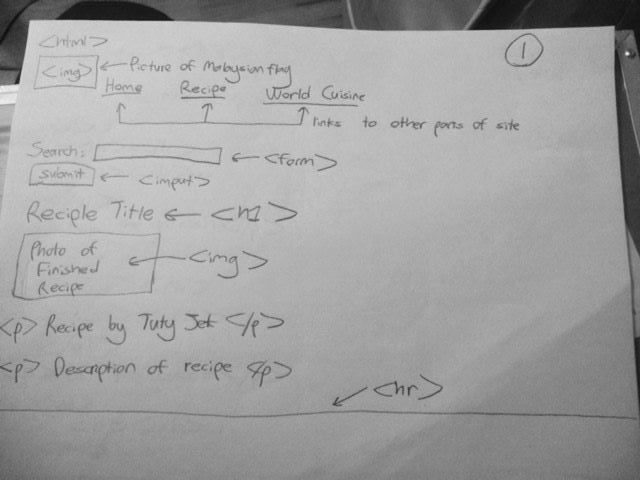 <html>
1
<img> Picture of Malaysian flag
Home Recipe World Cuisine
links to other parts of site
Search: <form>
submit <imput>
Reciple Title <h1>
Photo of
Finished
Recipe
<img>
<p> Recipe by Tuty Jek </p>
<p> Description of recipe </p>
<hr>